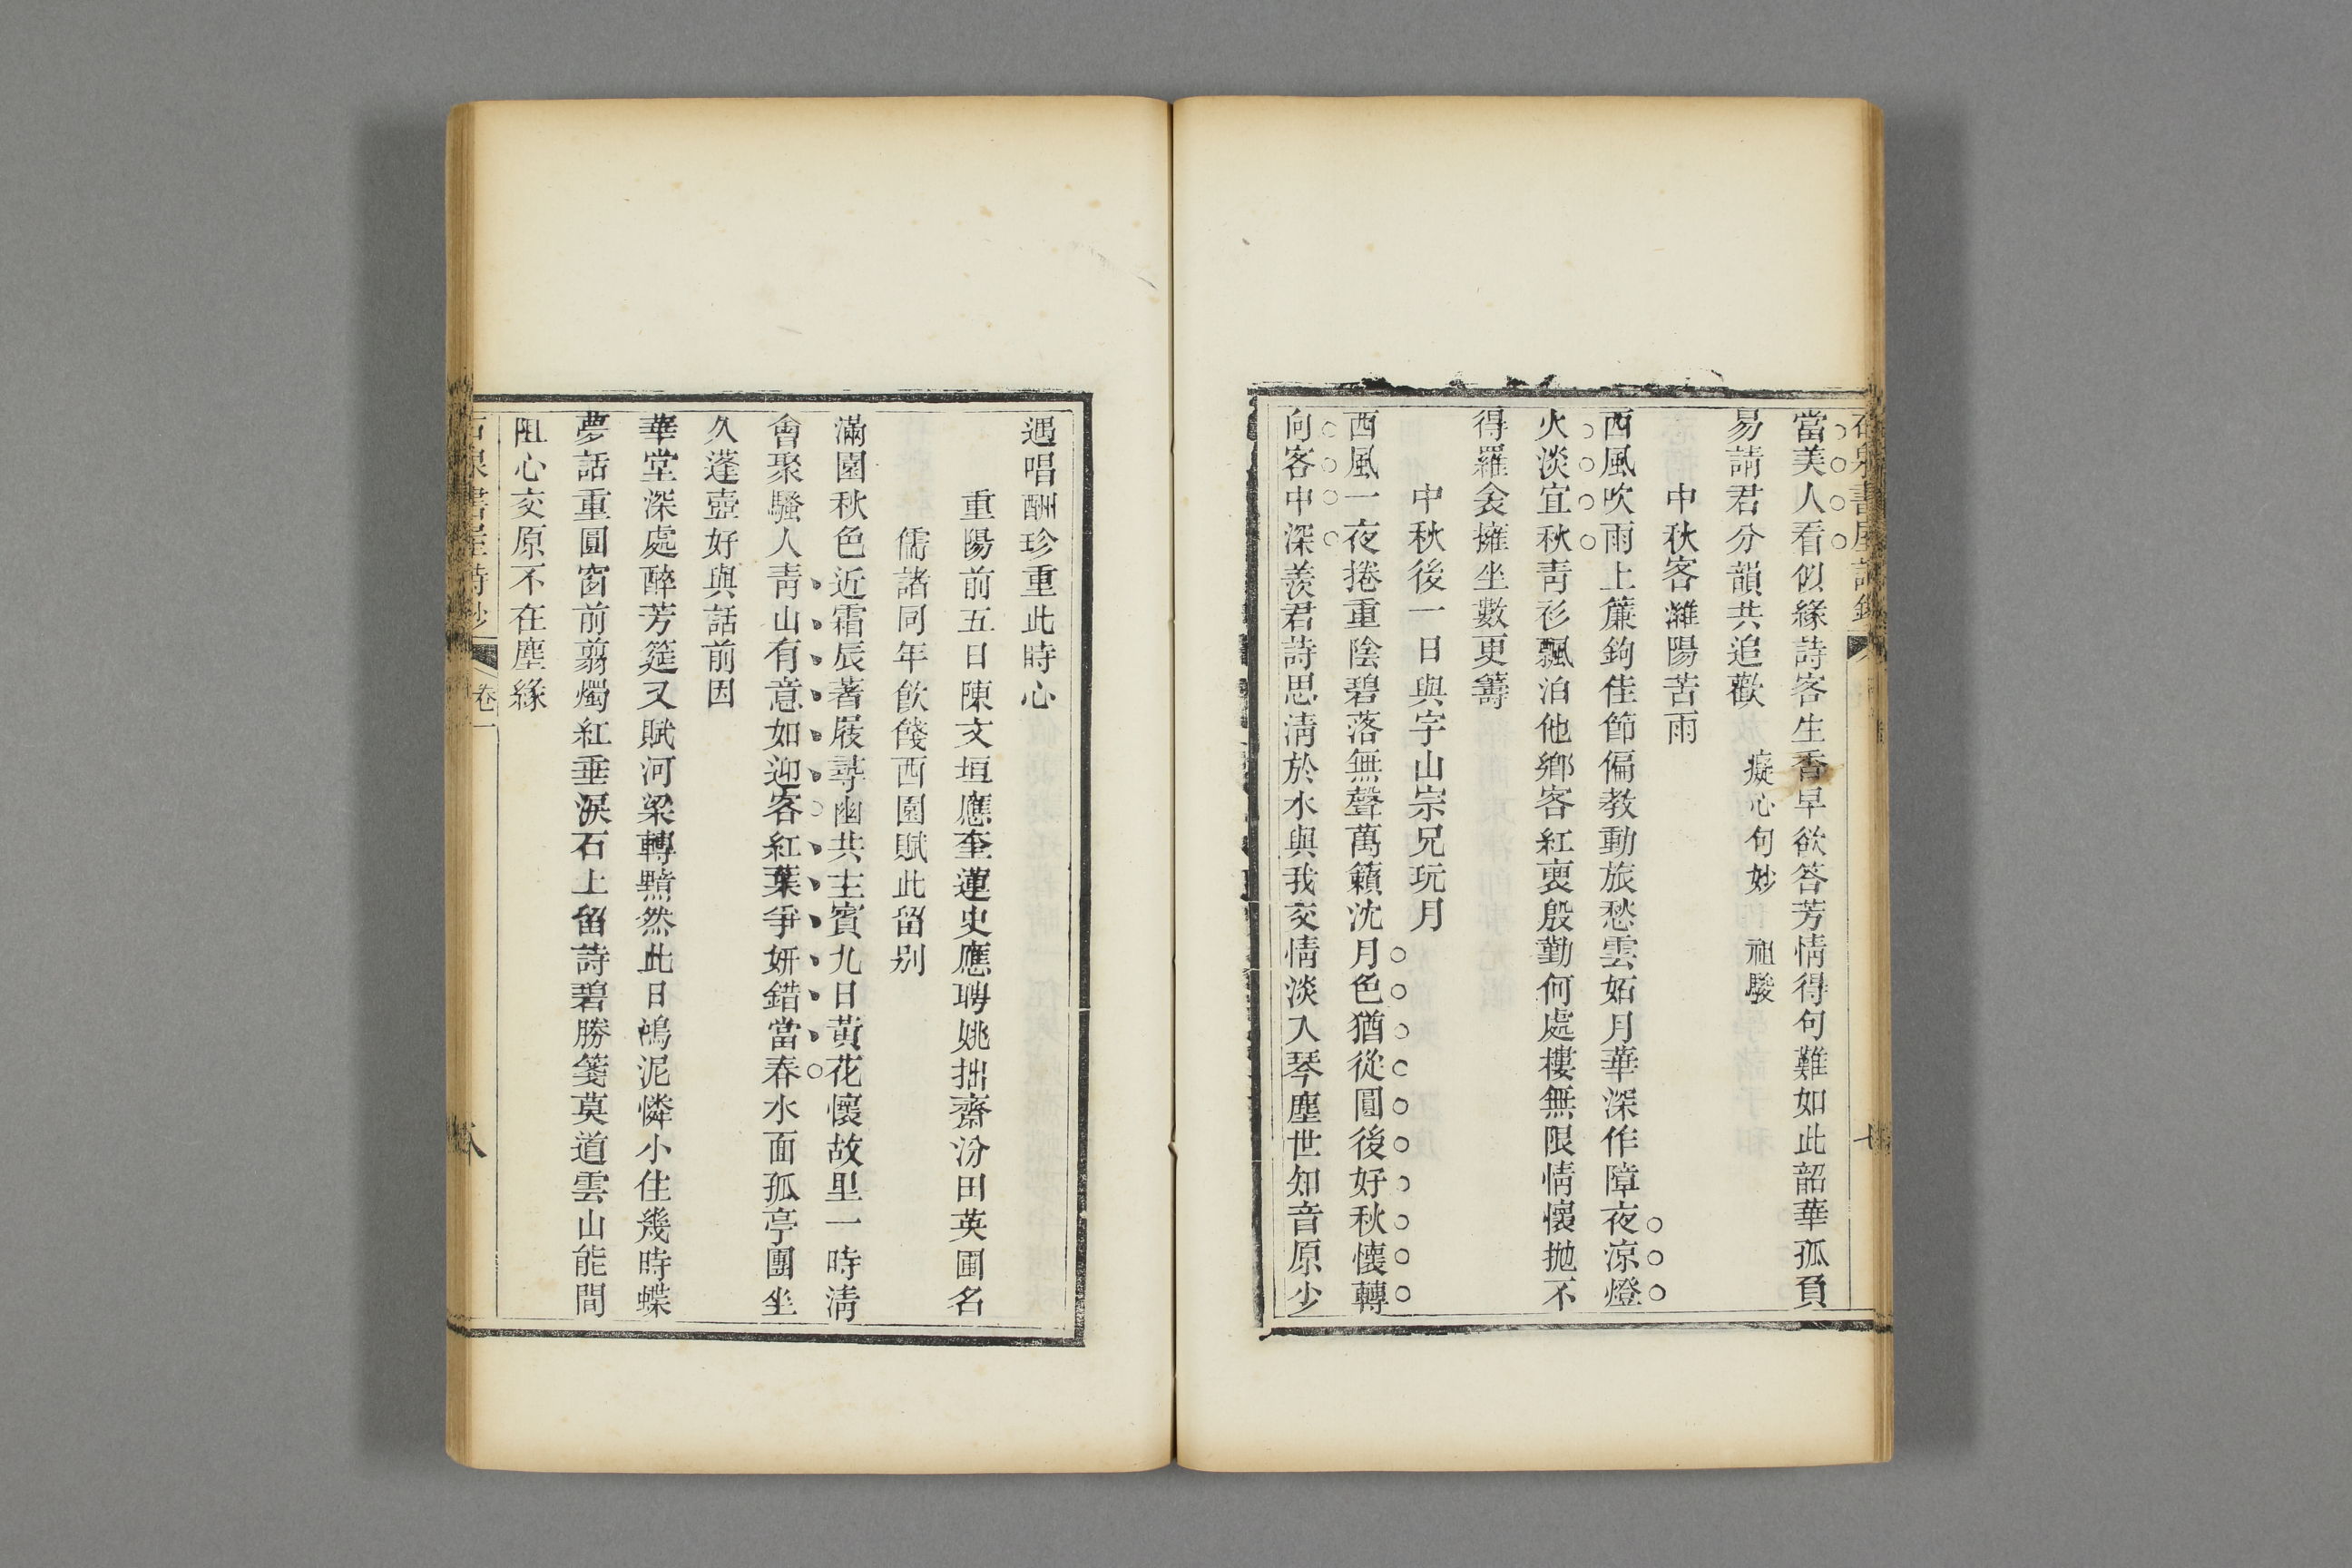 當美人看似緣詩客生香早欲答芳情得句難如此韶華孤負
易請君分韻共追歡
癡心句妙 祖駿
中秋客濰陽苦雨
西風吹雨上簾鉤佳節偏教動旅愁雲妬月華深作障夜涼燈
火淡宜秋靑衫飄泊他鄉客紅裏殷勤何處樓無限情懷拋不
得羅衾擁坐數更籌
中秋後一日與字山宗兄玩月
西風一夜捲重陰碧落無聲萬籟沈月色猶從圓後好秋懷轉
向客中深羨君詩思淸於水與我交情淡入琴塵世知音原少
遇唱酬珍重此時心
重陽前五日陳文垣應奎蓮史應聘姚拙齋汾田英圃名
儒諸同年飮餞西園賦此留別
滿園秋色近霜辰著屐尋幽共主賓九日黃花懷故里一時淸
會聚騷人靑山有意如迎客紅葉爭妍錯當春水面孤亭團坐
久蓬壺好與話前因
華堂深處醉芳筵又賦河梁轉黯然此日鴻泥憐小住幾時蝶
夢話重圓窗前翦燭紅垂淚石上留詩碧勝箋莫道雲山能間
阻心交原不在塵緣
石泉書屋詩鈔 卷一 八